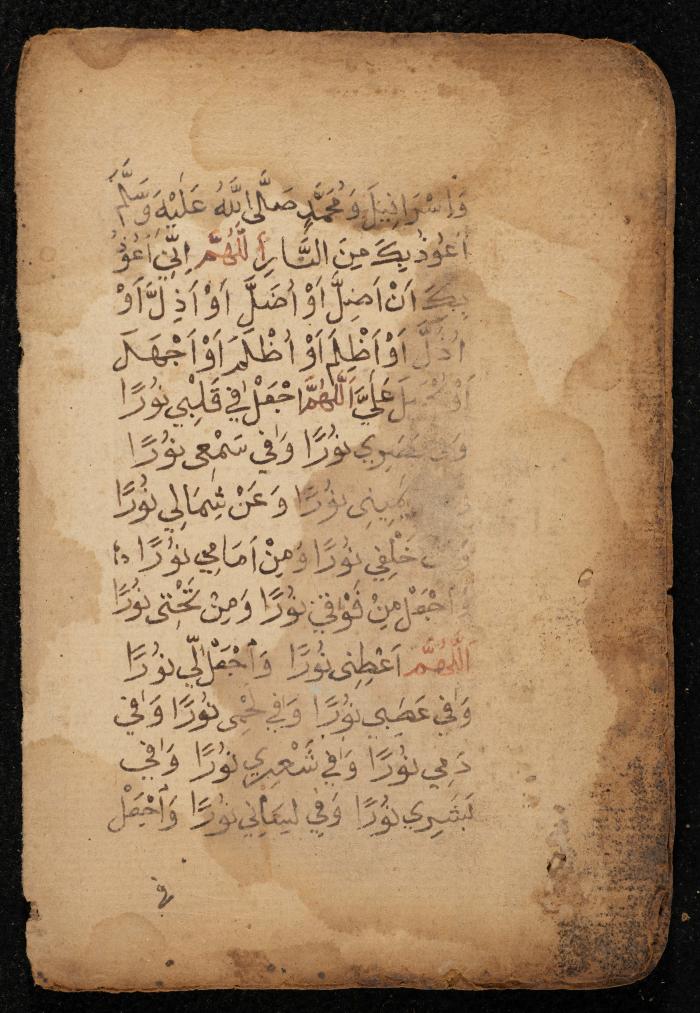 وَاِسْرَافِيْلَ وَمُحَمَّدٍ صَلَّى اللّٰهُ عَلَيْهِ وَسَلَّمَ
اَعُوْذُ بِكَ مِنَ النَّارِ اَللّٰهُمَّ اِنِّيْ اَعُوْذُ
بِكَ اَنْ اَضِلَّ اَوْ اُضَلَّ اَوْ اَذِلَّ اَوْ
اُذَلَّ اَوْ اَظْلِمَ اَوْ اُظْلَمَ اَوْ اَجْهَلَ
اَوْ يُجْهَلَ عَلَيَّ اَللّٰهُمَّ اجْعَلْ فِي قَلْبِي نُوْرًا
وَفِي بَصَرِي نُوْرًا وَفِي سَمْعِى نُوْرًا
يَمِيْنِى نُوْرًا وَعَنْ شِمَالِي نُوْرًا
خَلْفِي نُوْرًا وَمِنْ اَمَامِي نُوْرًا
وَاجْعَلْ مِنْ فَوْقِي نُوْرًا وَمِنْ تَحْتِى نُوْرًا
اَللّٰهُمَّ اَعْطِنِى نُوْرًا وَاجْعَلْ لِّي نُوْرًا
وَفِي عَصَبِي نُوْرًا وَفِي لَحْمِى نُوْرًا وَفِي
دَمِي نُوْرًا وَفِي شَعْرِي نُوْرًا وَفِي
بَشَرِي نُوْرًا وَفِي لِسَانِي نُوْرًا وَاجْعَلْ